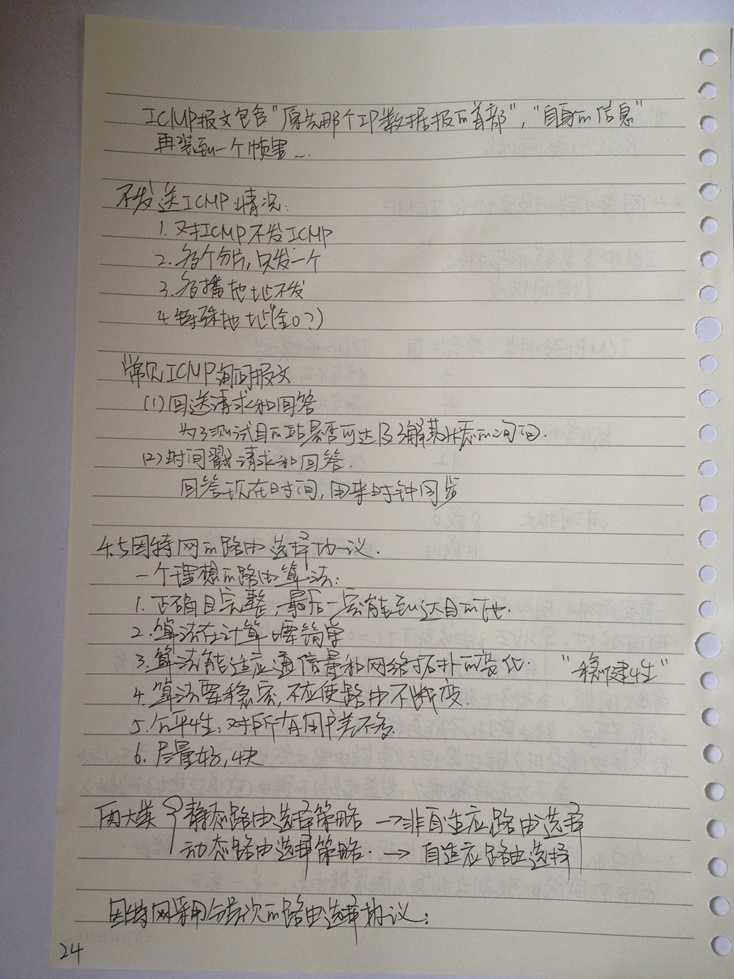 ICMP报文包含"原先那个IP数据报的首部","自身的信息"
再装到一个帧里…
不发送ICMP情况:
1.对ICMP不发ICMP
2.多个分片,只发一个
3.多播地址不发
4.特殊地址(全0?)
常见ICMP询问报文
(1)回送请求和回答
为了测试目的站是否可达及了解其状态的询问.
(2)时间戳请求和回答.
回答现在时间,用来时钟同步
4.5因特网的路由选择协议.
一个理想的路由算法:
1.正确且完整,最后一定能到达目的地.
2.算法在计算上要简单
3.算法能适应通信量和网络拓扑的变化. "稳健性"
4.算法要稳定,不应使路由不断变.
5.公平性,对所有用户
6.尽量好,快
两大类{静态路由选择策略 →非自适应路由选择
动态路由选择策略. → 自适应路由选择
因特网采用分层次的路由选择协议:
24